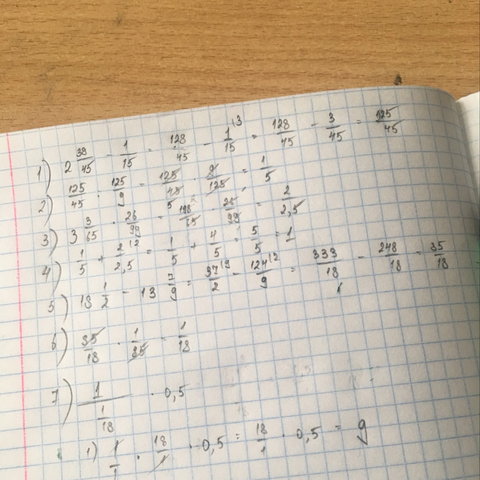 1) 2 38/45 - 1/15 = 128/45 - 1/15 ^(3 = 128/45 - 3/45 = 125/45
2) 125/45 : 125/9 = 125/45 · 9/125 = 1/5
3) 3 3/65 · 26/99 = 198/65 · 26/99 = 2/2,5
4) 1/5 + 2/2,5 ^(2 = 1/5 + 4/5 = 5/5 = 1
5) 18 1/2 - 13 7/9 = 37/2 ^(9 - 124/9 ^(2 = 333/18 - 248/18 = 35/18
6) 35/18 · 1/35 = 1/18
7) 1/(1/18) · 0,5
1) 1/1 · 18/1 · 0,5 = 18/1 · 0,5 = 9